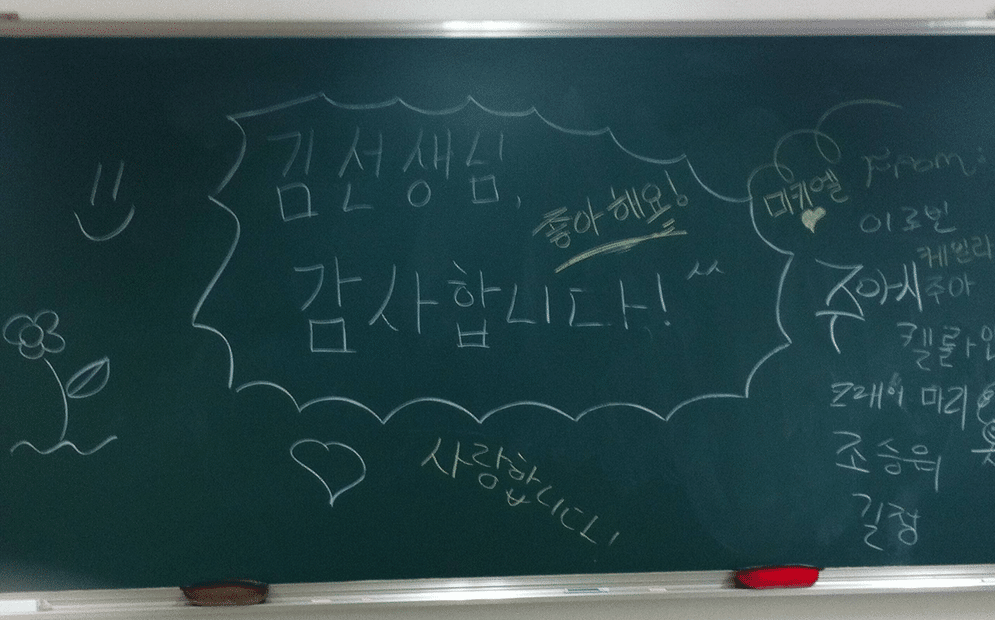 김선생님,
좋아해요!
감사합니다! ^^
사랑합니다!
미카엘
From:
이로빈
케빈라
주아
주아시
켈률라인
크래이 마리
조승워
길장